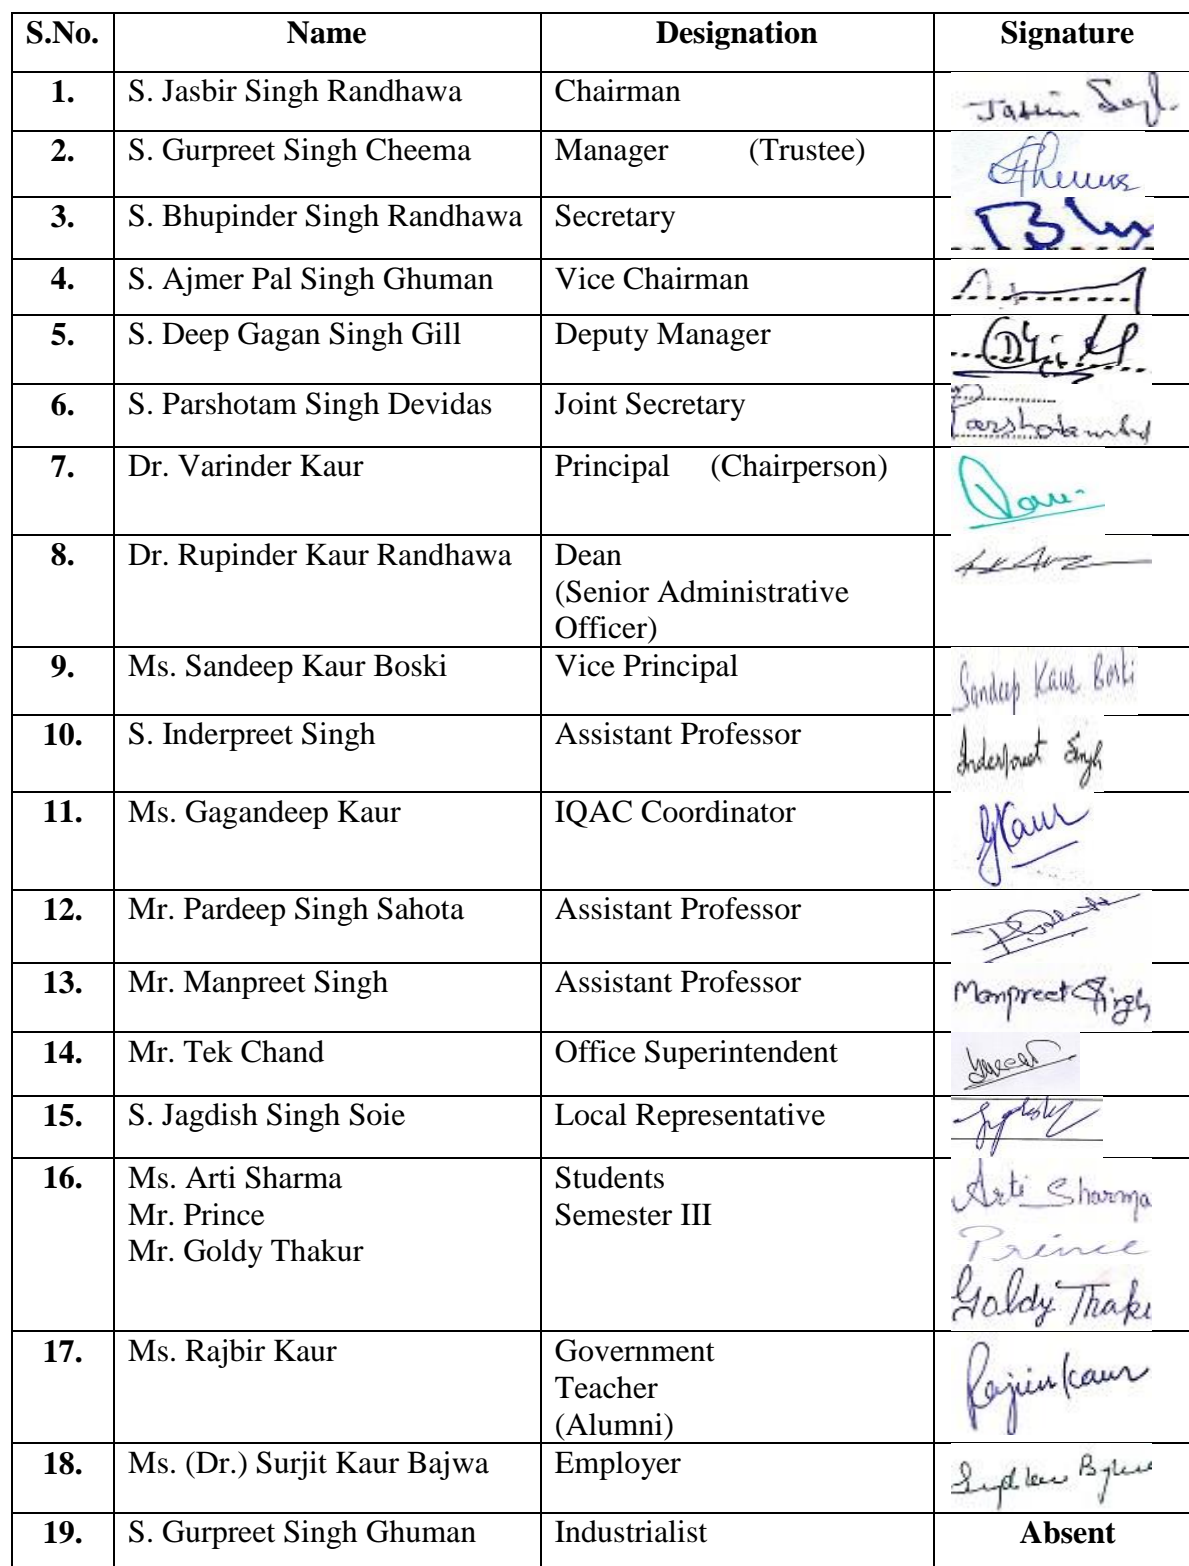 S.No. Name Designation Signature
1. S. Jasbir Singh Randhawa Chairman
2. S. Gurpreet Singh Cheema Manager (Trustee)
3. S. Bhupinder Singh Randhawa Secretary
4. S. Ajmer Pal Singh Ghuman Vice Chairman
5. S. Deep Gagan Singh Gill Deputy Manager
6. S. Parshotam Singh Devidas Joint Secretary
7. Dr. Varinder Kaur Principal (Chairperson)
8. Dr. Rupinder Kaur Randhawa Dean
(Senior Administrative
Officer)
9. Ms. Sandeep Kaur Boski Vice Principal Sandeep Kaur Boski
10. S. Inderpreet Singh Assistant Professor Inderpreet Singh
11. Ms. Gagandeep Kaur IQAC Coordinator GKaur
12. Mr. Pardeep Singh Sahota Assistant Professor
13. Mr. Manpreet Singh Assistant Professor Manpreet Singh
14. Mr. Tek Chand Office Superintendent
15. S. Jagdish Singh Soie Local Representative
16. Ms. Arti Sharma Students Arti Sharma
Mr. Prince Semester III Prince
Mr. Goldy Thakur Goldy Thaku
17. Ms. Rajbir Kaur Government Kaur
Teacher
(Alumni)
18. Ms. (Dr.) Surjit Kaur Bajwa Employer
19. S. Gurpreet Singh Ghuman Industrialist Absent